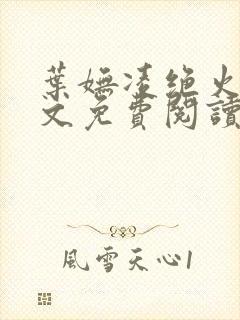 葉嫵凌絕火
文免費閱讀
風雪天心1